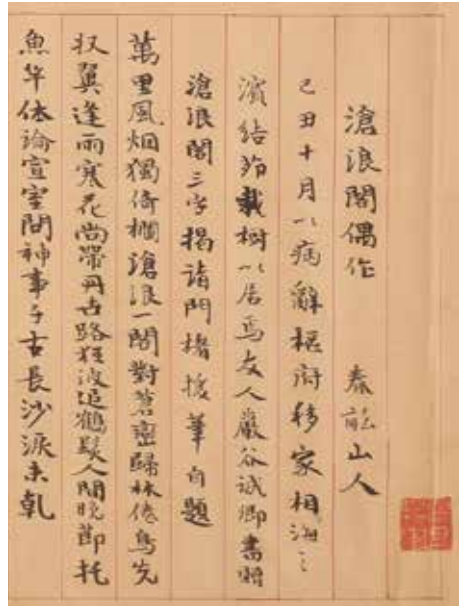 滄浪閣偶作　春畝山人
己丑十月以病辭樞府移家相海之
濱結茆栽樹以居焉友人巖谷誠卿書贈
滄浪閣三字揭諸門楣援筆自題
萬里風烟獨倚欄滄浪一閣對蒼巒歸林倦鳥先
収翼逢雨寒花尚帶丹世路狂波追鶴髮人間晩節托
魚竿休論宣室問神事千古長沙淚未乹